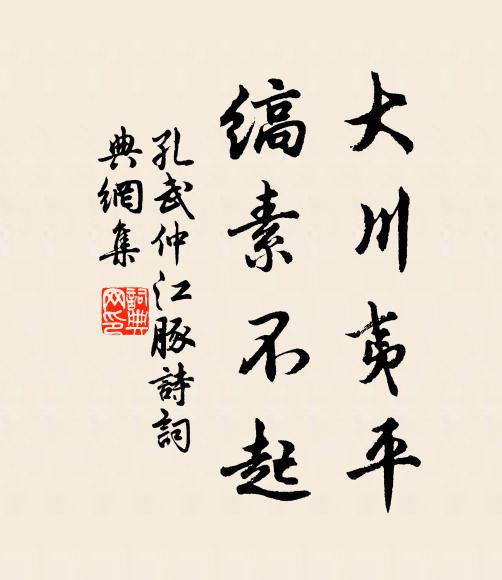 大川夷平
縞素不起
孔武仲江豚詩詞
典網集
詞典
网印